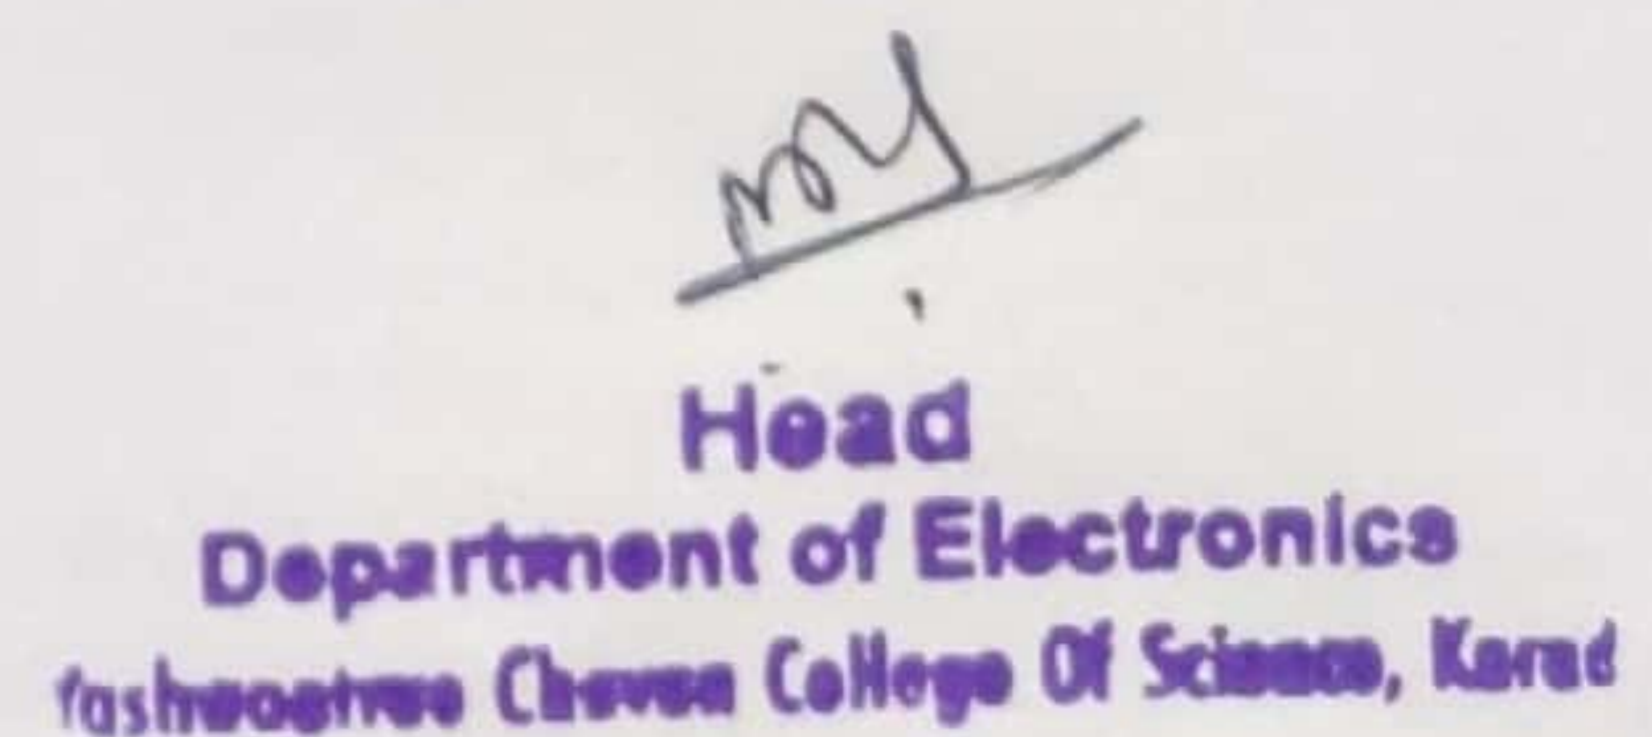 Head
Department of Electronics
Yashwantrao Chavan College Of Science, Karad